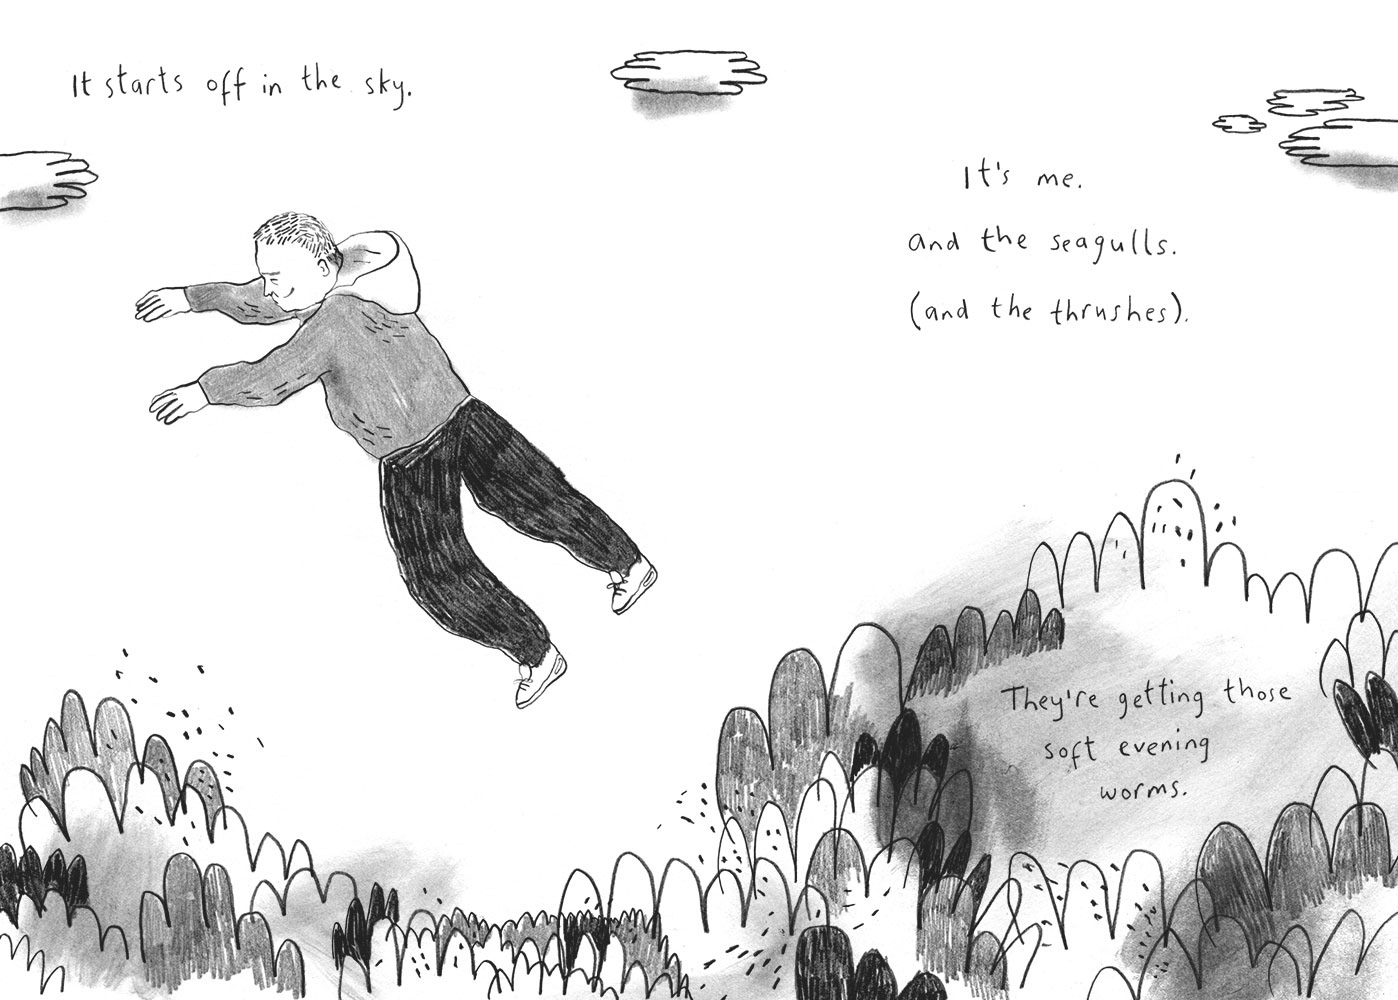 It starts off in the sky.
It's me.
and the seagulls.
(and the thrushes).
They're getting those
soft evening
worms.